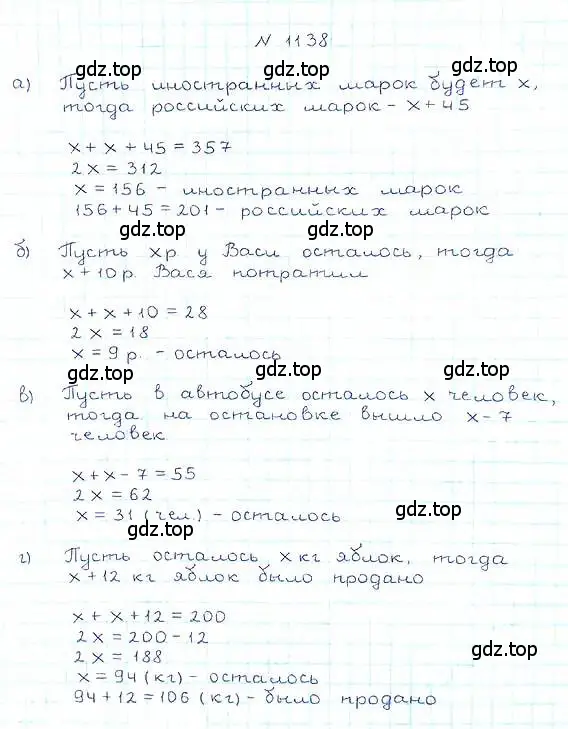 N 1138
gdz.top gdz.top
а) Пусть иностранных марок будет x,
тогда российских марок - x + 45
gdz.top gdz.top
x + x + 45 = 357
2x = 312
x = 156 - иностранных марок
156 + 45 = 201 - российских марок
gdz.top gdz.top
б) Пусть x р у Васи осталось, тогда
x + 10 р. Вася потратил
x + x + 10 = 28
2x = 18
x = 9 р. - осталось
gdz.top gdz.top gdz.top
в) Пусть в автобусе осталось x человек,
тогда на остановке вышло x - 7
человек
x + x - 7 = 55
2x = 62
x = 31 (чел.) - осталось
gdz.top
gdz.top gdz.top
г) Пусть осталось x кг яблок, тогда
x + 12 кг яблок было продано
x + x + 12 = 200
2x = 200 - 12
2x = 188
gdz.top
x = 94 (кг) - осталось
94 + 12 = 106 (кг) - было продано
gdz.top gdz.top